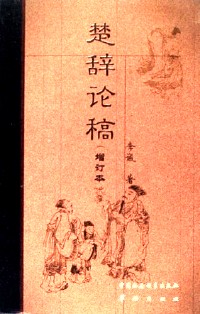 楚辞论稿
(增订本)
李诚 著